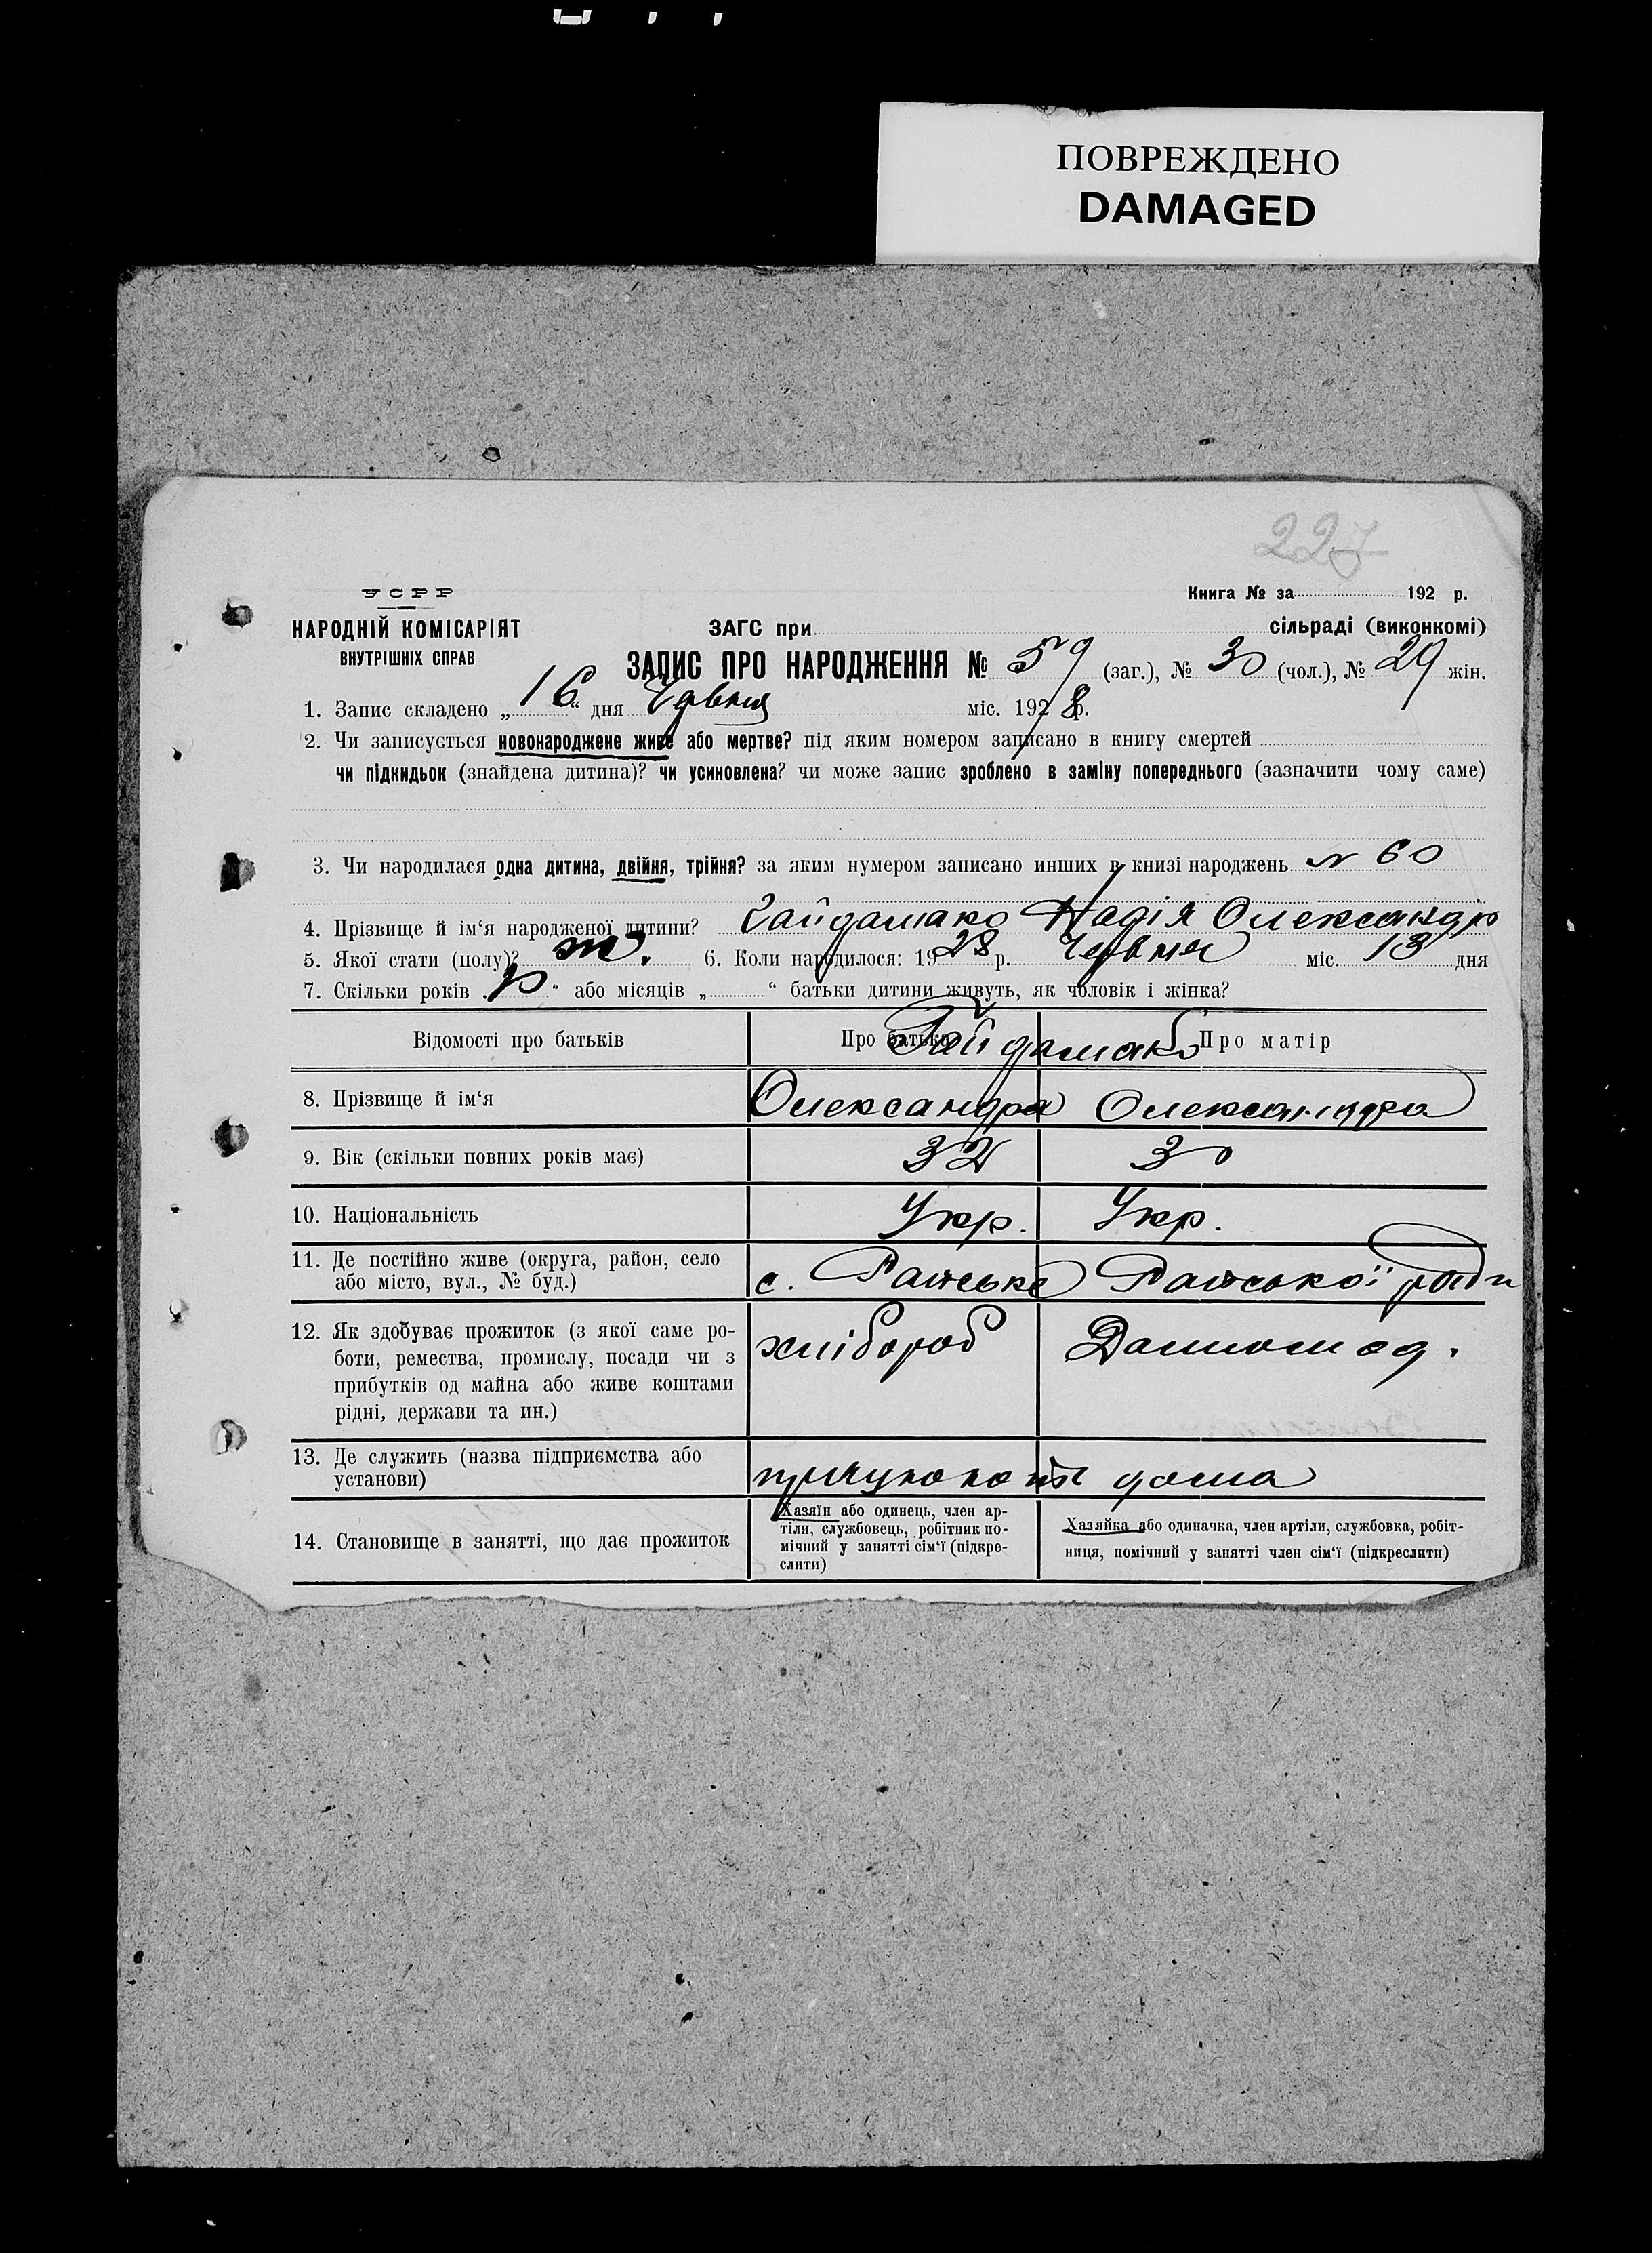 ПОВРЕЖДЕНО
DAMAGED
227
УСРР
НАРОДНІЙ КОМІСАРІЯТ
ВНУТРІШНІХ СПРАВ
Книга № за 192 р.
ЗАГС при сільраді (виконкомі)
ЗАПИС ПРО НАРОДЖЕННЯ № 59 (заг.), № 30 (чол.), № 29 жін.
1. Запис складено „16“ дня Червня міс. 1928 р.
2. Чи записується новонароджене живе або мертве? під яким номером записано в книгу смертей
чи підкидьок (знайдена дитина)? чи усиновлена? чи може запис зроблено в заміну попереднього (зазначити чому саме)
3. Чи народилася одна дитина, двійня, трійня? за яким нумером записано инших в книзі народжень № 60
4. Прізвище й ім‘я народженої дитини? Гайдамако Надія Олександр
5. Якої стати (полу)? ж. 6. Коли народилося: 1928 р. Червня міс. 13 дня
7. Скільки років „ “ або місяців „ “ батьки дитини живуть, як чоловік і жінка?
Відомості про батьків Про батька Про матір
Гайдамако
8. Прізвище й ім‘я Олександра Олександра
9. Вік (скільки повних років має) 32 30
10. Національність Укр. Укр.
11. Де постійно живе (округа, район, село
або місто, вул., № буд.) с. Райське Райської ради
12. Як здобуває прожиток (з якої саме ро-
боти, ремества, промислу, посади чи з
прибутків од майна або живе коштами
рідні, держави та ин.) хлібороб Домогосд.
13. Де служить (назва підприємства або
установи) дома
14. Становище в занятті, що дає прожиток
Хазяїн або одинець, член ар-
тіли, службовець, робітник по-
мічний у занятті сім‘ї (підкре-
слити)
Хазяйка або одиначка, член артіли, службовка, робіт-
ниця, помічний у занятті член сім‘ї (підкреслити)